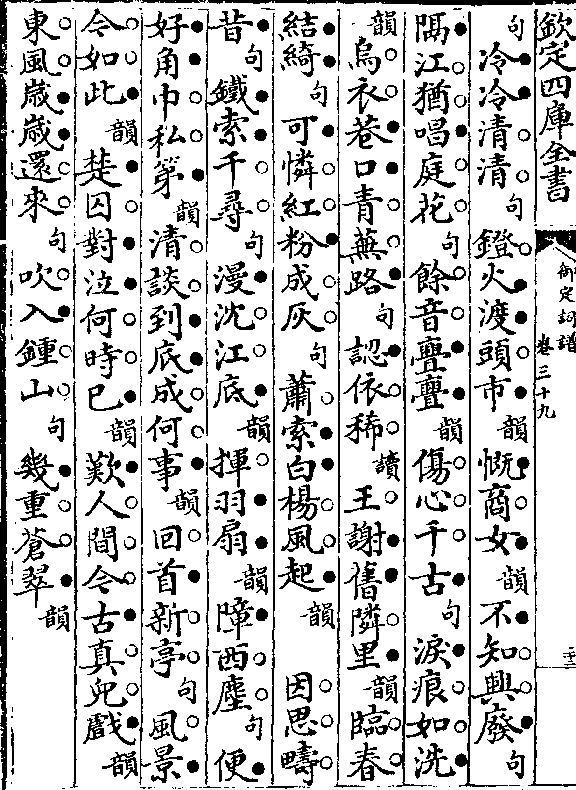 欽定四庫全書
御定詞譜
卷三十九
二十二
句冷冷清清句鐙火渡頭市韻慨商女韻不知興廢句
隔江猶唱庭花句餘音亹亹韻傷心千古句淚痕如洗
韻烏衣巷口青蕪路句認依稀讀王謝舊隣里韻臨春
結綺句可憐紅粉成灰句蕭索白楊風起韻因思疇
昔句鐵索千尋句漫沈江底韻揮羽扇韻障西塵句便
好角巾私第韻清談到底成何事韻回首新亭句風景
今如此韻楚囚對泣何時已韻歎人間今古真兒戲韻
東風嵗嵗還來句吹入鍾山句幾重蒼翠韻